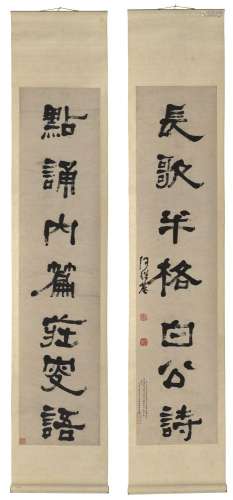 長歌半格白公詩
點誦內篇莊叟語